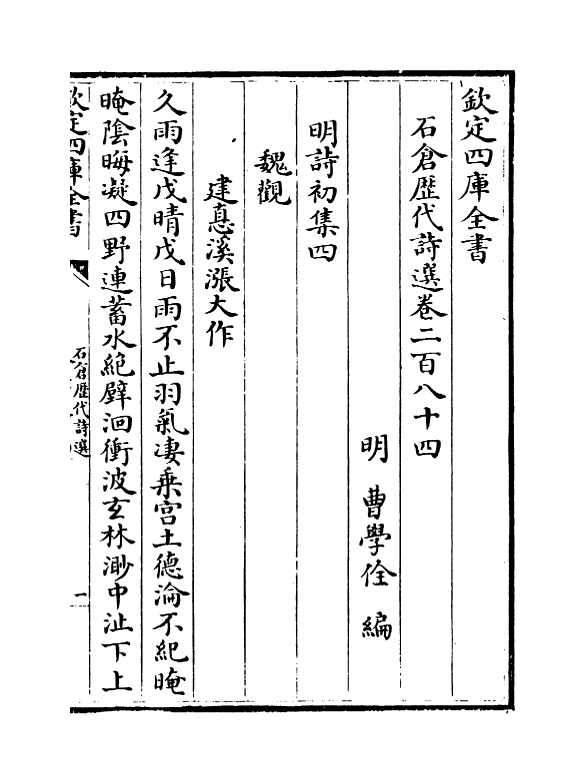 欽定四庫全書
石倉歴代詩選卷二百八十四
明 曹學佺 編
明詩初集四
魏觀
建悳溪漲大作
久雨逢戊晴戊日雨不止羽氣凄乗宫土德淪不紀晻
晻陰晦凝四野連蓄水絶壁洄衝波玄林渺中沚下上
欽定四庫全書
石倉歴代詩選
一